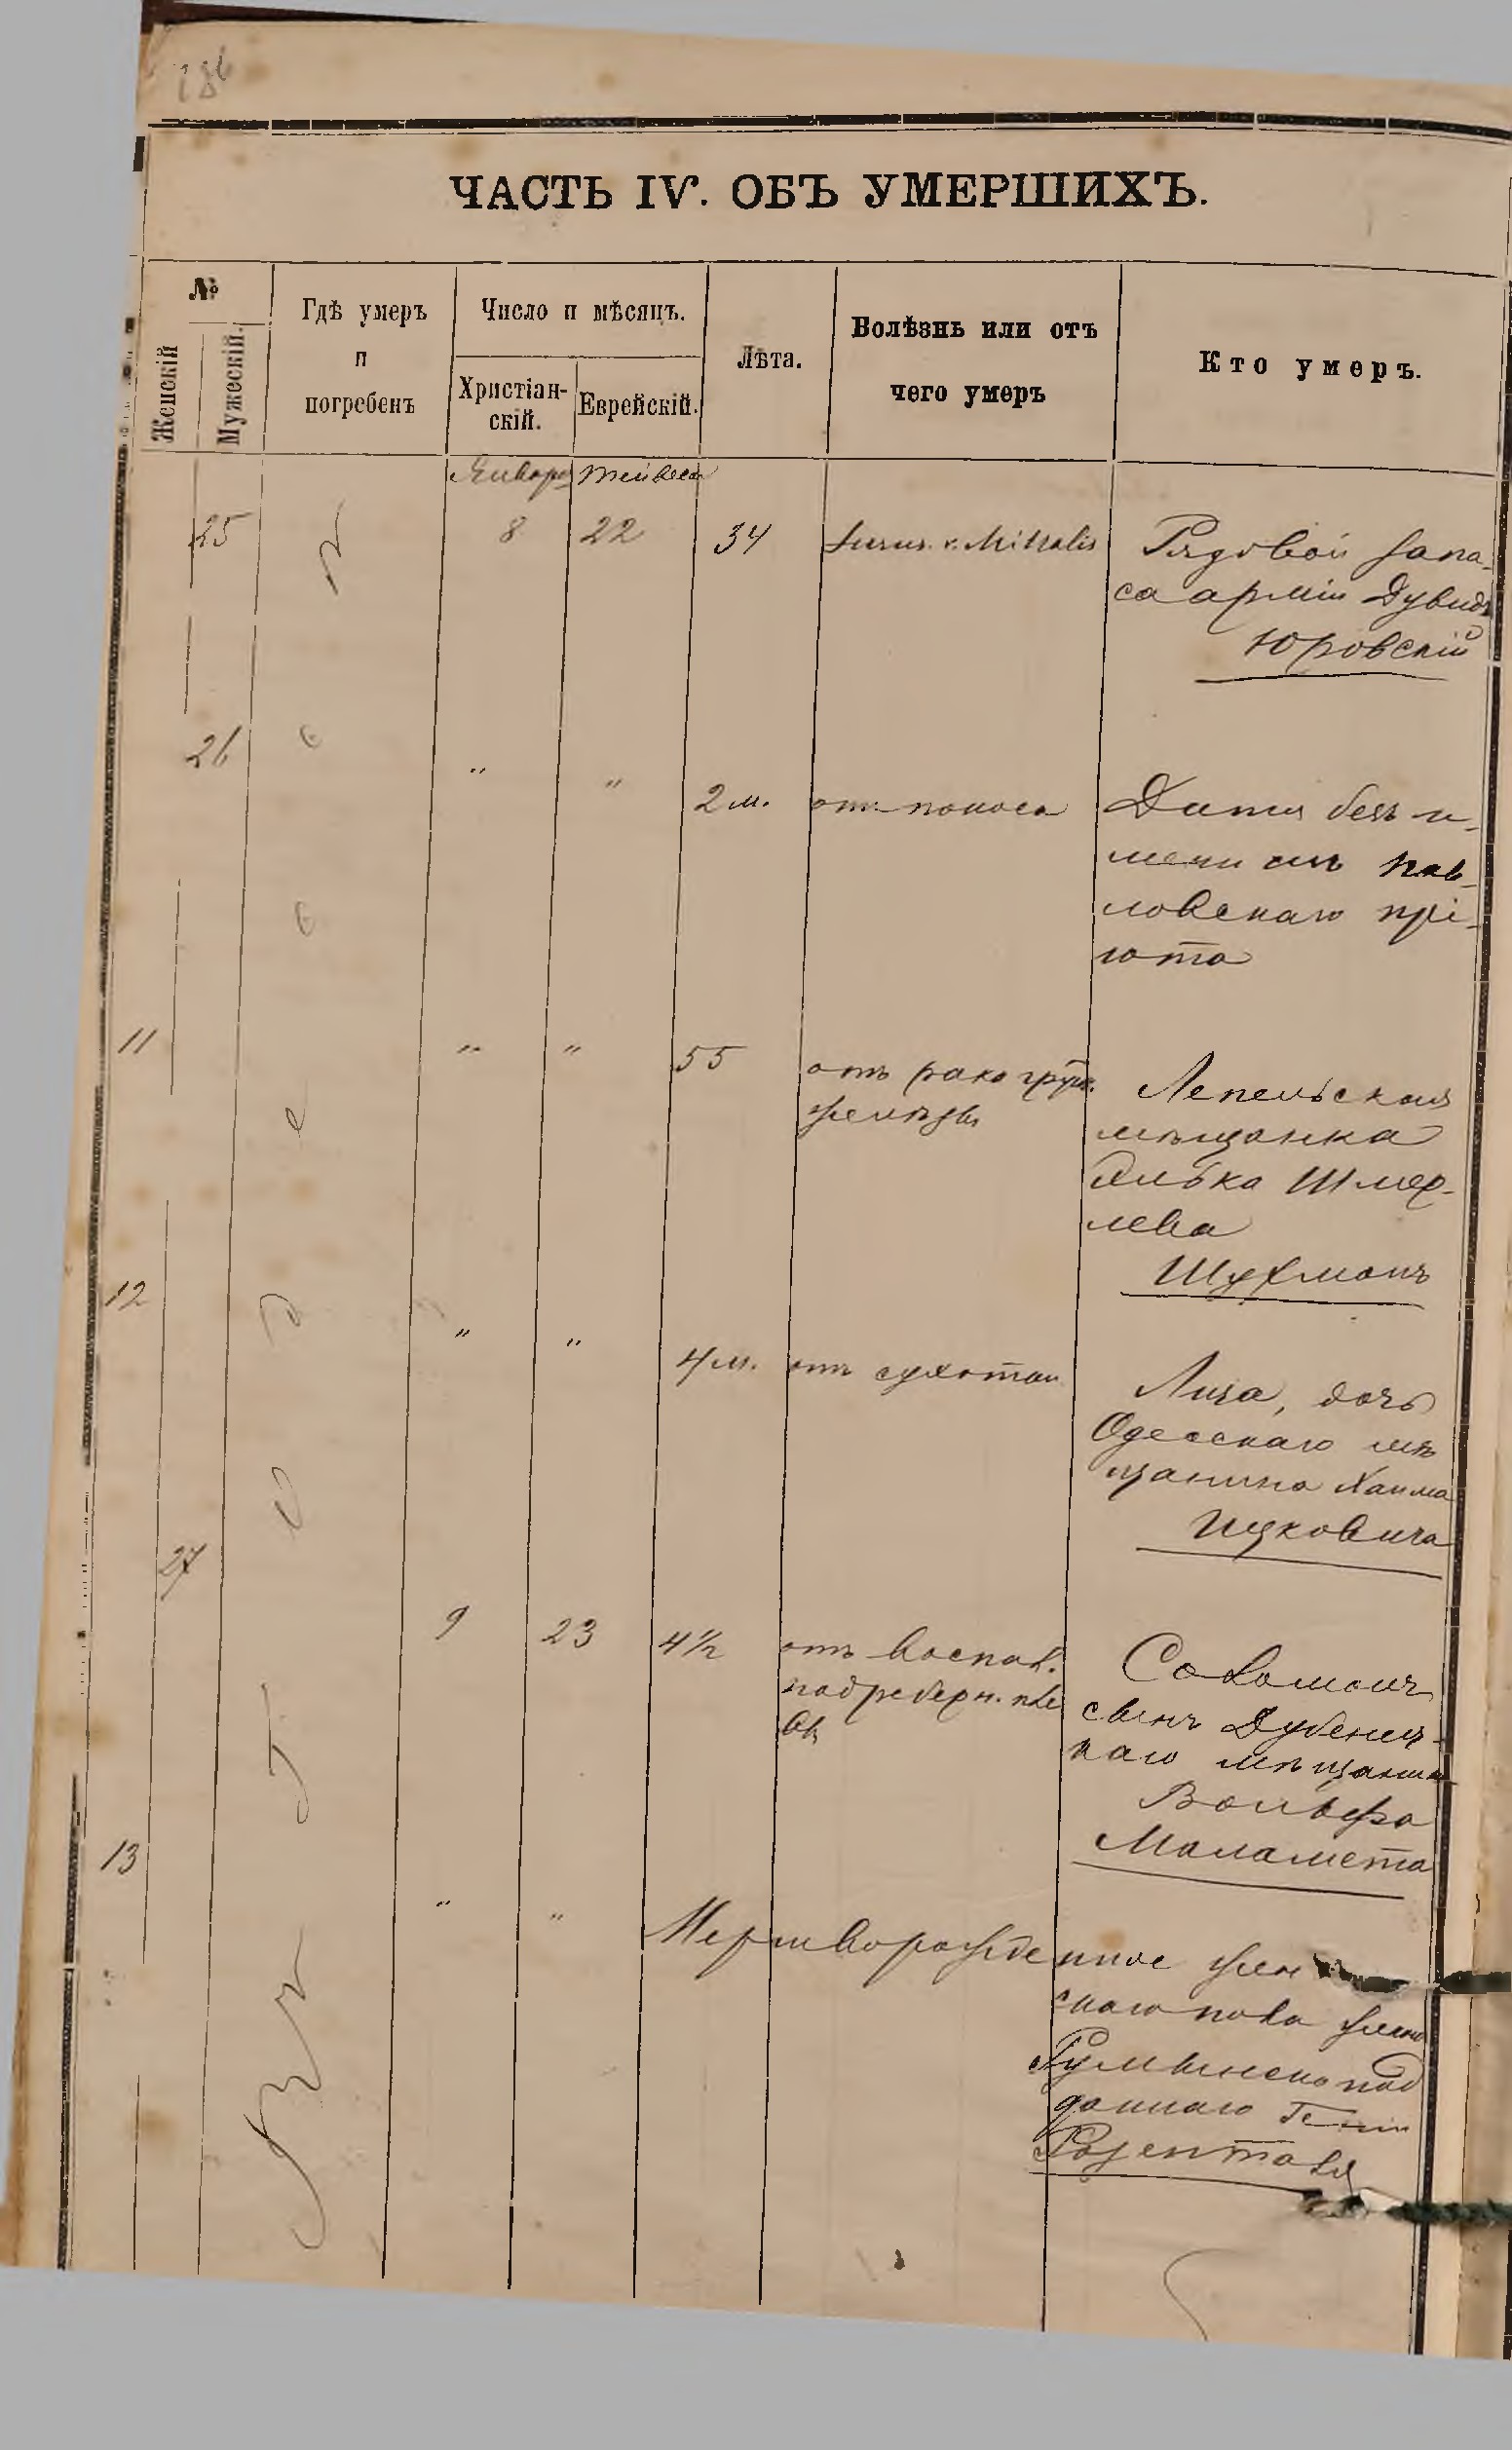 186
ЧАСТЬ IV. ОБЪ УМЕРШИХЪ.
№
Женскій
Мужескій.
Гдѣ умеръ
и
погребенъ
Число и мѣсяцъ.
Христіан-
скій.
Еврейскій.
Лѣта.
Болѣзнь или отъ
чего умеръ
Кто умеръ.
Январь Тейвеса
25 8 22 34 Mitralis Рядовой запа-
са арміи Дувидъ
Юровскій
26 " " 2 м. отъ поноса Дитя безъ и-
мени изъ Пав-
ловскаго прі-
юта
11 " " 55 отъ рака груд.
желѣзы
Лепельская
мѣщанка
Элька Шмер-
лева
Шухманъ
12 " " 4 м. отъ сухотки Лиза, дочь
Одесскаго мѣ
щанина Хаима
Ицковича
27 9 23 4½ отъ воспал.
подреберн. пле
вы
Соломонъ
сынъ Дубенец-
каго мѣщанина
Вольфа
Маламета
13 " " Мертворожденное жен
скаго пола жены
Румынско под
даннаго
Розенталя
Въ Одессѣ